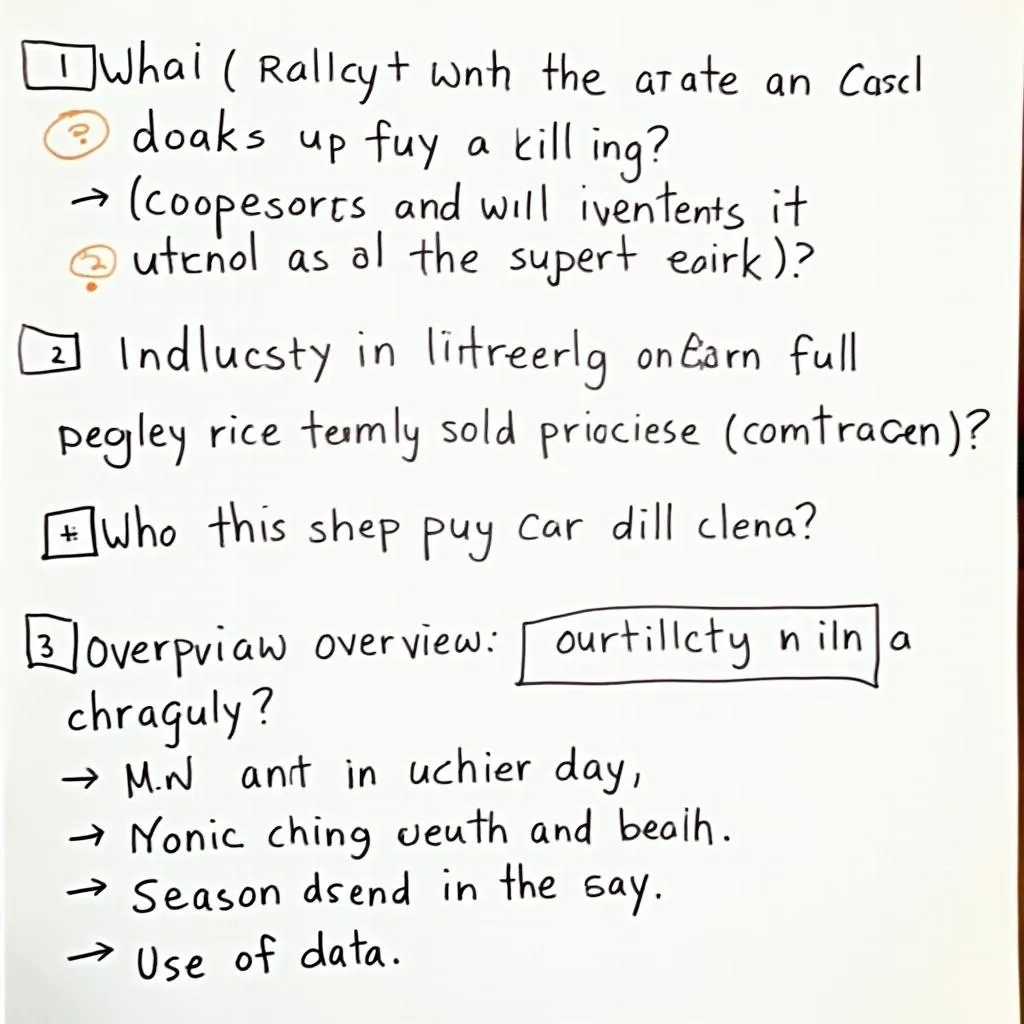 1 Whai ( Rallcyt wnh the arate an Cascl
? doaks up fuy a killing?
→ (coopesorts and will iventents it
? utcnol as al the supert eairk)?
2 Indlucsty in lirtreerlg on Earn full
pegley rice temly sold priociese (comtracen)?
# Who this shep puy Car dill clena?
3 Overpviaw overview: ourtillcty n iln a
chraguly?
→ M.N ant in uchier day,
→ Nonic ching ueuth and beaih.
→ Season dsend in the say.
→ Use of data.